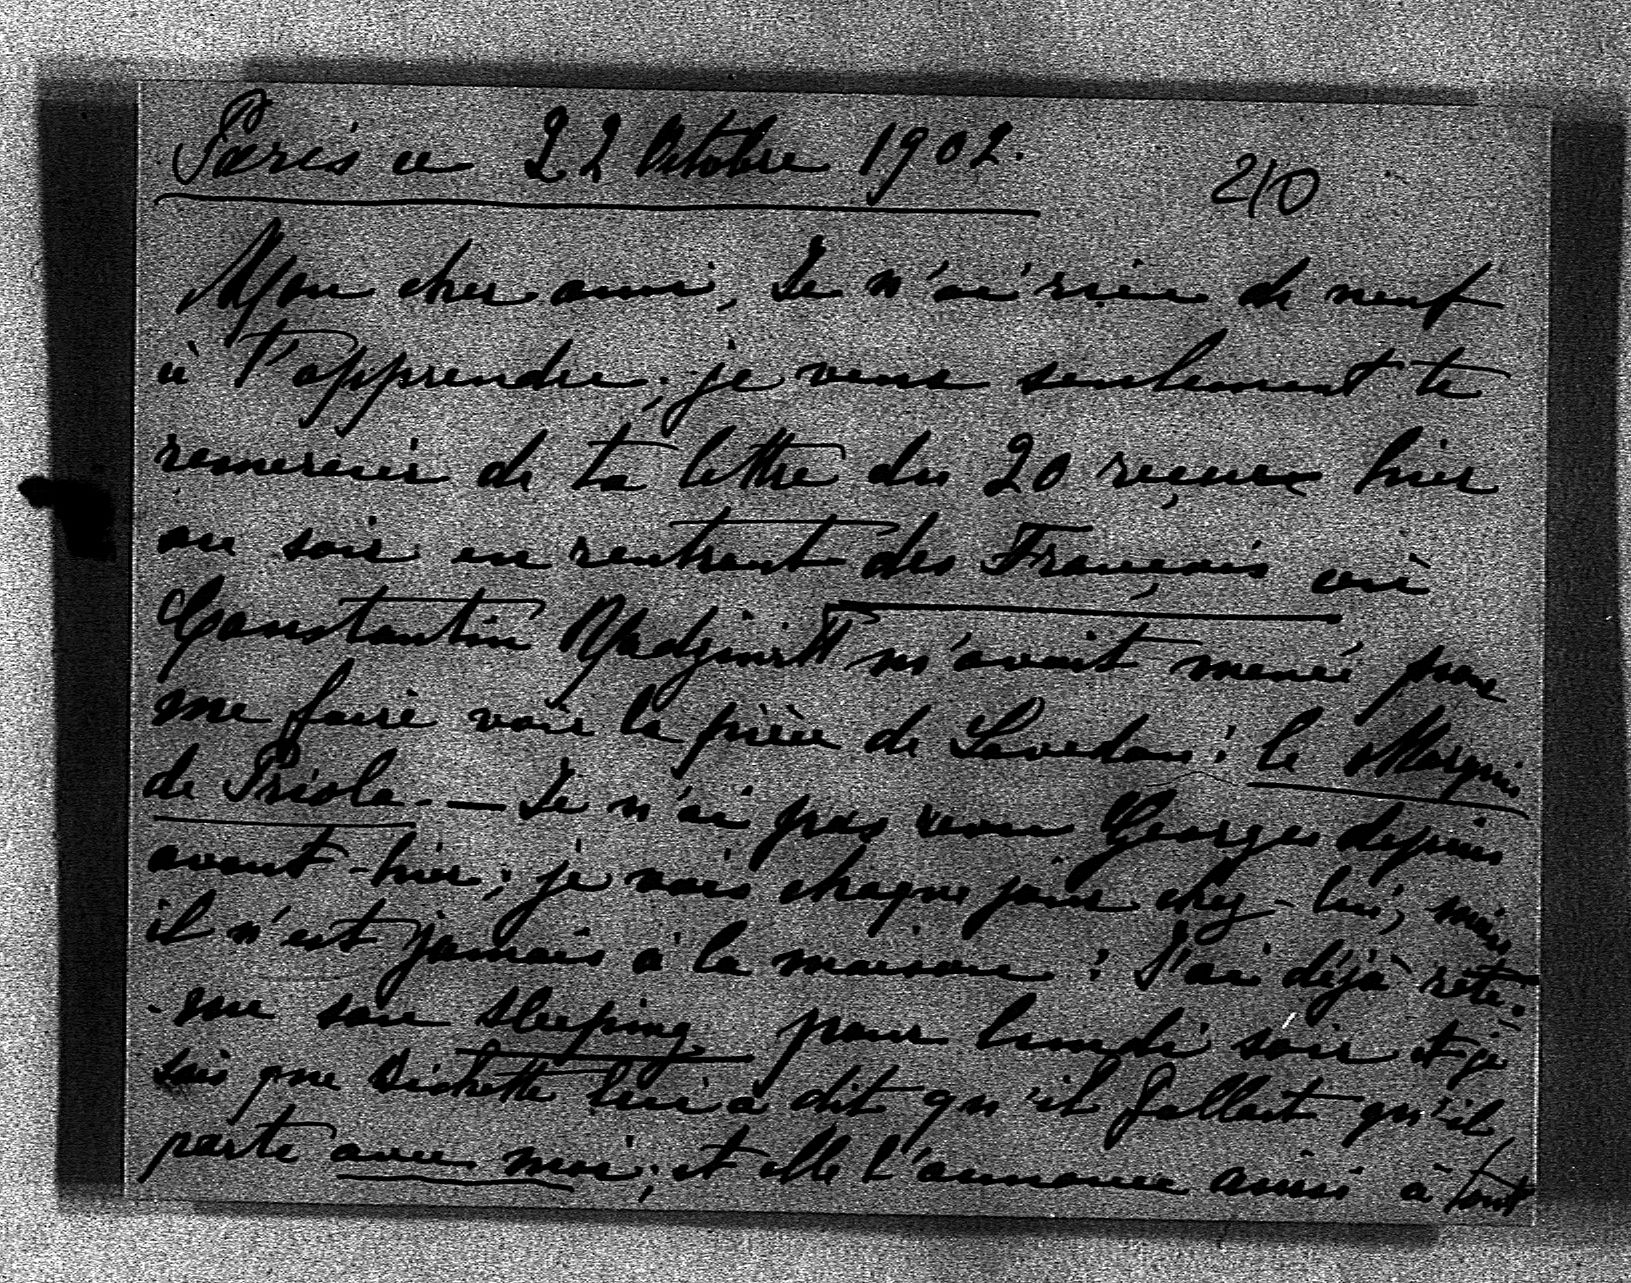 Paris ce 22 Octobre 1902.
210
Mon cher ami, Je n'ai rien de neuf
à t'apprendre; je veux seulement te
remercier de ta lettre du 20 reçue hier
au soir en rentrant des Français où
Constantin m'avait mené pour
me faire voir la pièce de Lavedan: le Marquis
de Priola. — Je n'ai pas revu Georges depuis
avant-hier; je vais chaque jour chez-lui, mais
il n'est jamais à la maison: J'ai déjà rete-
-nu son sleeping pour lundi soir et je
sais que lui a dit qu'il fallait qu'il
parte avec moi; et elle l'annonce ainsi à tout